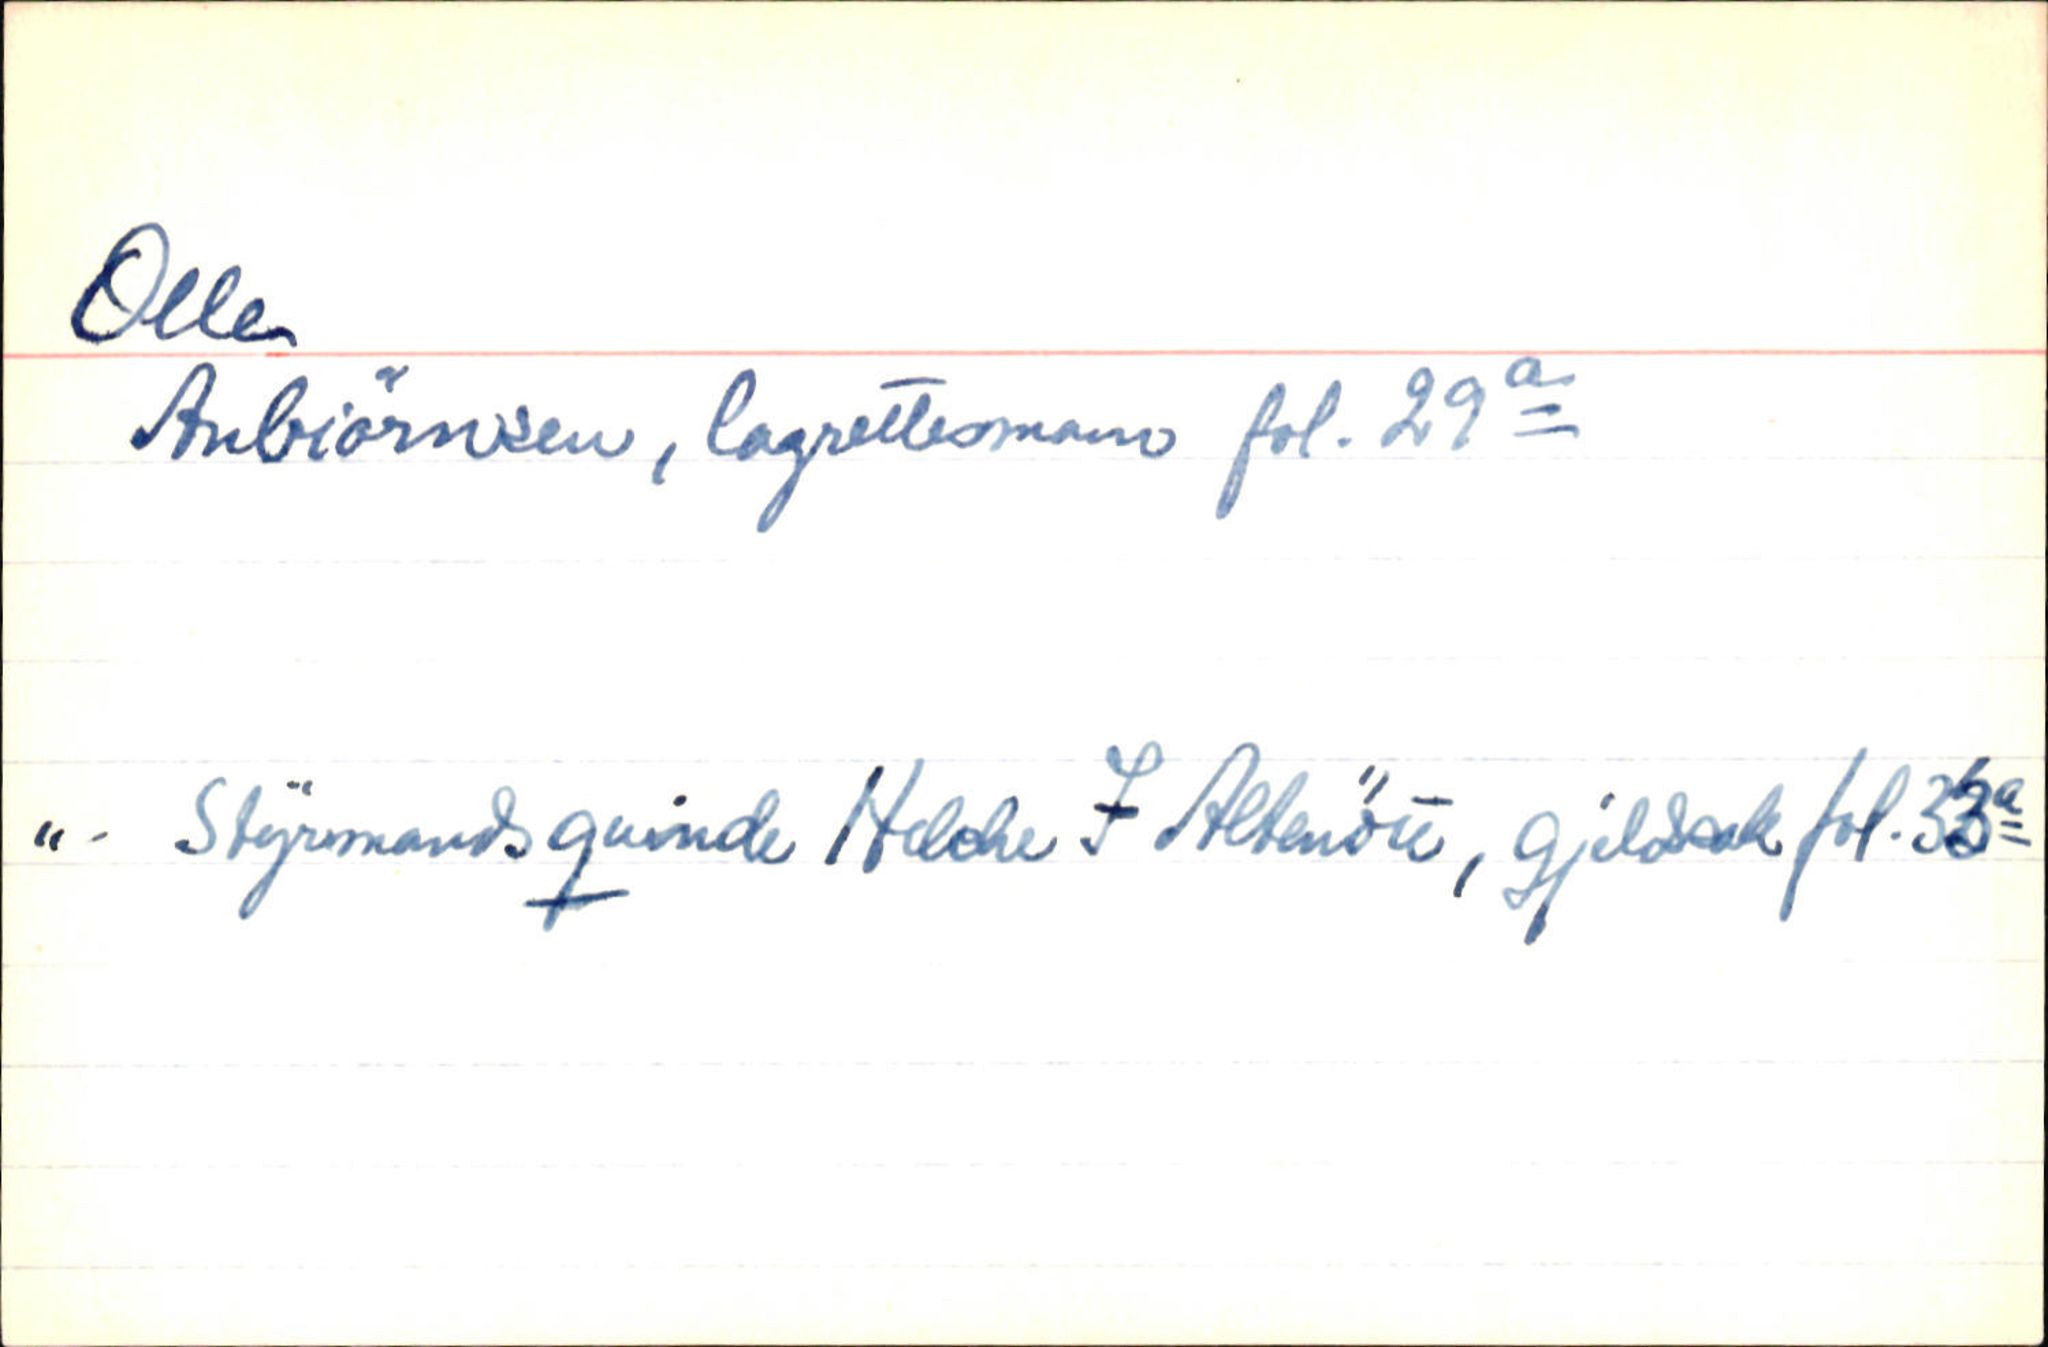 Olle
Anbiörnsen, lagrettesmann fol. 29a
"- Stÿrmands quinde Helche I Altenöü, gjeldsak fol. 33a